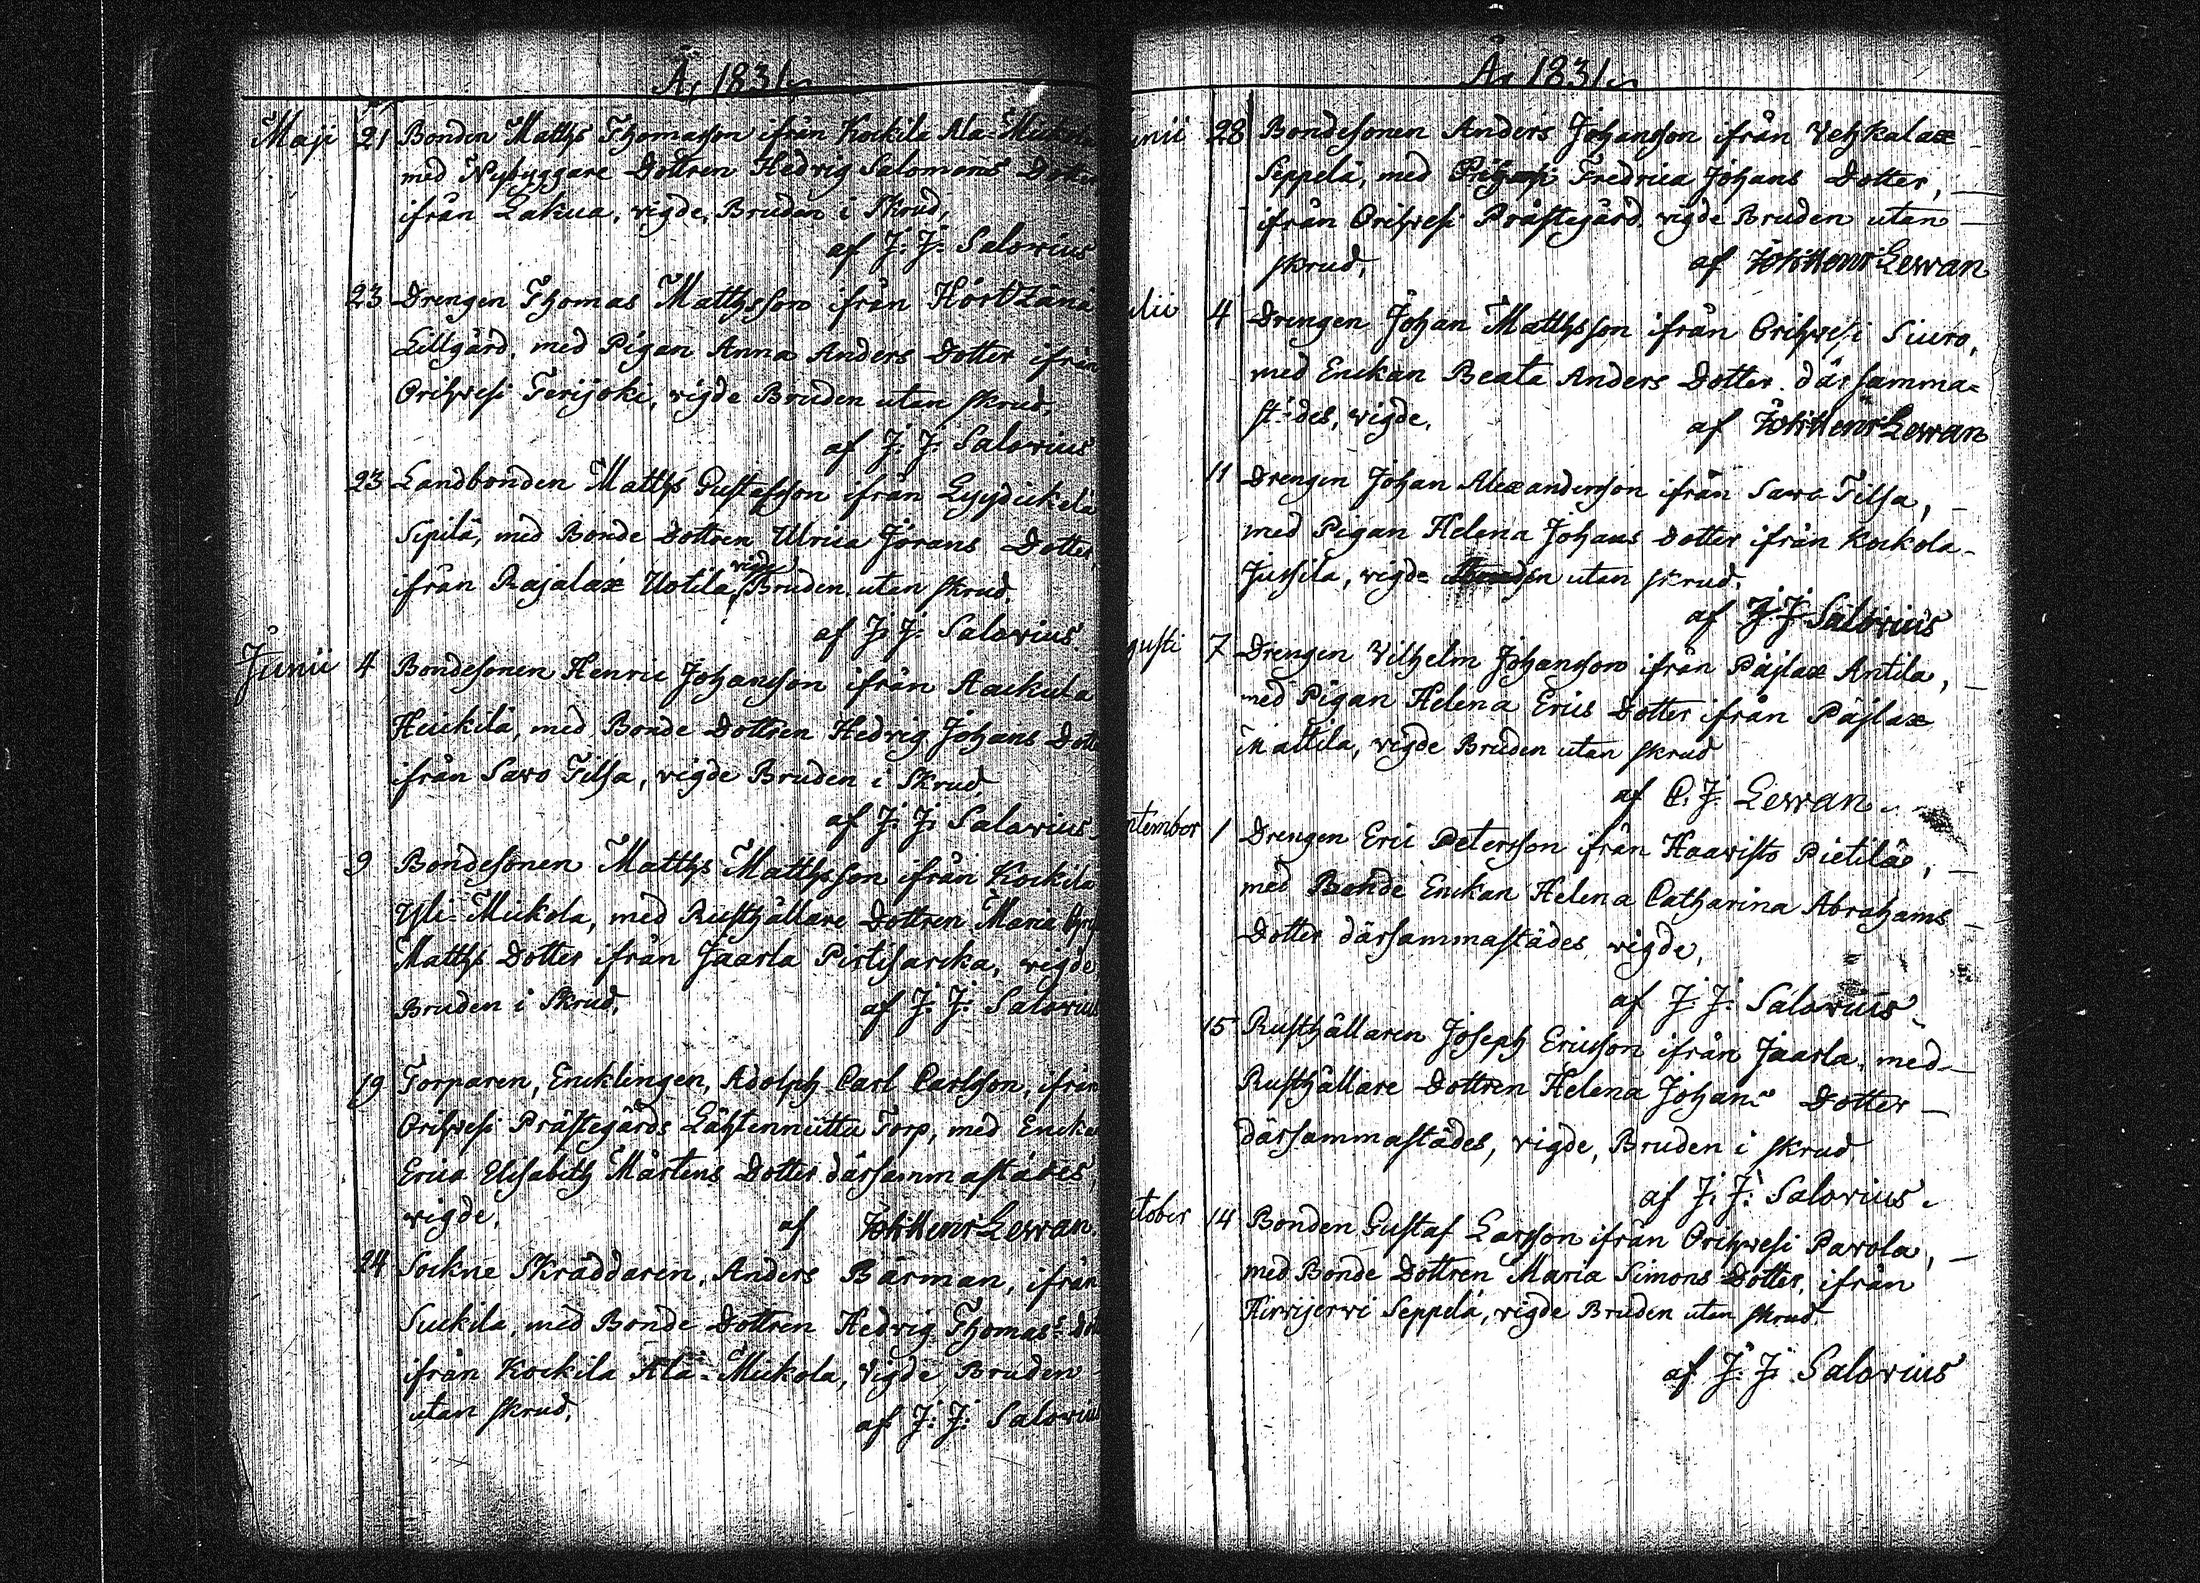 År 1831
Maji 21 Bonden Matths Thomasson ifrån Kockila Ala-Mickola
med Nybyggare Dottren Hedvig Salomons Dotter
ifrån Lakua, vigde, Bruden i Skrud,
af J: J: Salovius
23 Drengen Thomas Matthsson ifrån
Lillgård, med Pigan Anna Anders Dotter ifrån
Orihvesi Terijoki, vigde Bruden utan skrud,
af J: J: Salovius
23 Landbonden Matths Gustafsson ifrån Lyydickelä
Sipilä, med Bonde Dottren Ulrica Jörans Dotter,
vigde
ifrån Rajalax Uotila, Bruden utan skrud.
af J: J: Salovius
Junii 4 Bondesonen Henric Johansson ifrån Aackula
Heickilä, med Bonde Dottren Hedvig Johans Dott
ifrån Savo Tilsa, vigde Bruden i Skrud,
af J: J: Salovius
9 Bondesonen Matths Matthsson ifrån Kockila
Yli-Mickola, med Rusthållare Dottren Maria
Matths Dotter ifrån Jaarla Pirtisarka, vigde
Bruden i Skrud, af J: J: Salovius
19 Torparen, Encklingen, Adolph Carl Carlsson, ifrån
Orihvesi Prästegårds Lähtenniittu Torp, med Encka
Erica Elisabeth Mårtens Dotter därsammastädes,
vigde, af Joh Henr Lewan
24 Sockne Skräddaren, Anders Bärman, ifrån
Suckila, med Bonde Dottren Hedvig Thomas Dot
ifrån Kockila Ala-Mickola, vigde Bruden
utan skrud, af J: J: Salovius
År 1831
unii 28 Bondesonen Anders Johansson ifrån Vehkalax
Seppelä, med Pigan Fredrica Johans Dotter,
ifrån Orihvesi Prästegård, vigde Bruden utan
skrud, af Joh Henr Lewan
ulii 4 Drengen Johan Matthsson ifrån Orihvesi Siuro,
med Enckan Beata Anders Dotter därsamma-
städes, vigde, af Joh Henr Lewan
11 Drengen Johan Alexandersson ifrån Savo Tilsa,
med Pigan Helena Johans Dotter ifrån Kockola
Jussila, vigde Bruden utan skrud,
af J: J: Salovius
gusti 7 Drengen Vilhelm Johansson ifrån Päjlax Antila,
med Pigan Helena Erics Dotter ifrån Päjlax
Mattila, vigde Bruden utan skrud
af C. J. Lewan
ptember 1 Drengen Eric Petersson ifrån Haavisto Pietilä,
med Bonde Enckan Helena Catharina Abrahams
Dotter därsammastädes vigde,
af J: J: Salovius
15 Rusthållaren Joseph Ericsson ifrån Jaarla, med
Rusthållare Dottren Helena Johans Dotter
därsammastädes, vigde, Bruden i skrud
af J: J: Salovius
ctober 14 Bonden Gustaf Larsson ifrån Orihvesi Pavola,
med Bonde Dottren Maria Simons Dotter, ifrån
Hirvijervi Seppelä, vigde Bruden utan skrud.
af J: J: Salovius